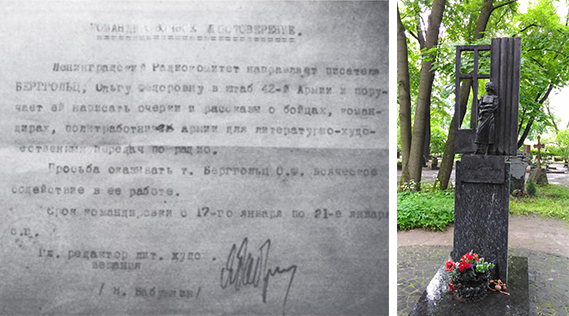 КОМАНДИРОВОЧНОЕ УДОСТОВЕРЕНИЕ.
Ленинградский Радиокомитет направляет писателя
БЕРГГОЛЬЦ, Ольгу Федоровну в штаб 42-й Армии и пору-
чает ей написать очерки и рассказы о бойцах, коман-
дирах, политработниках армии для литературно-худо-
жественных передач по радио.
Просьба оказывать т. Берггольц О.Ф. всяческое
содействие в ее работе.
Срок командировки с 17-го января по 21-е января
с.г.
Гл. редактор лит. худо
вещания
/ Я. Бабушкин /